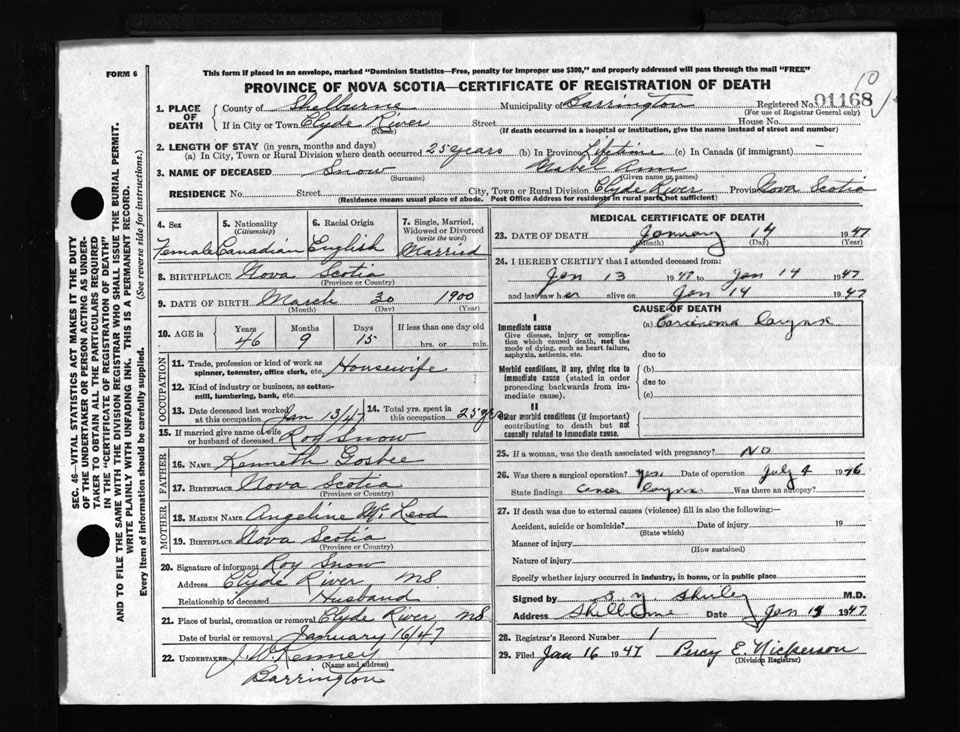 FORM 6
This form if placed in an envelope, marked "Dominion Statistics—Free, penalty for improper use $300," and properly addressed will pass through the mail "FREE"
PROVINCE OF NOVA SCOTIA—CERTIFICATE OF REGISTRATION OF DEATH
1. PLACE OF DEATH
County of Shelburne Municipality of Barrington Registered No. 01168
(For use of Registrar General only)
If in City or Town Clyde River Street House No.
(If death occurred in a hospital or institution, give the name instead of street and number)
2. LENGTH OF STAY (in years, months and days)
(a) In City, Town or Rural Division where death occurred 25 years (b) In Province Lifetime (c) In Canada (if immigrant) —
3. NAME OF DECEASED Snow Mabel Ann
(Surname) (Given name or names)
RESIDENCE No. Street City, Town or Rural Division Clyde River Province Nova Scotia
(Residence means usual place of abode. Post Office Address for residents in rural parts not sufficient)
SEC. 46—VITAL STATISTICS ACT MAKES IT THE DUTY
OF THE UNDERTAKER OR PERSON ACTING AS UNDER-
TAKER TO OBTAIN ALL THE PARTICULARS REQUIRED
IN THE "CERTIFICATE OF REGISTRATION OF DEATH"
AND TO FILE THE SAME WITH THE DIVISION REGISTRAR WHO SHALL ISSUE THE BURIAL PERMIT.
WRITE PLAINLY WITH UNFADING INK. THIS IS A PERMANENT RECORD.
Every item of information should be carefully supplied. (See reverse side for instructions.)
4. Sex Female
5. Nationality (Citizenship) Canadian
6. Racial Origin English
7. Single, Married, Widowed or Divorced (write the word) Married
8. BIRTHPLACE Nova Scotia
(Province or Country)
9. DATE OF BIRTH March 30 1900
(Month) (Day) (Year)
10. AGE in Years 46 Months 9 Days 15 If less than one day old
hrs. or min.
OCCUPATION
11. Trade, profession or kind of work as spinner, teamster, office clerk, etc. Housewife
12. Kind of industry or business, as cotton-mill, lumbering, bank, etc.
13. Date deceased last worked at this occupation Jan 13/47
14. Total yrs. spent in this occupation 25 yrs
15. If married give name of wife or husband of deceased Roy Snow
FATHER
16. NAME Kenneth Gosbee
17. BIRTHPLACE Nova Scotia
(Province or Country)
MOTHER
18. MAIDEN NAME Angeline McLeod
19. BIRTHPLACE Nova Scotia
(Province or Country)
20. Signature of informant Roy Snow
Address Clyde River, NS
Relationship to deceased Husband
21. Place of burial, cremation or removal Clyde River, NS
Date of burial or removal January 16/47
22. UNDERTAKER J. W. Kenney
(Name and address)
Barrington
MEDICAL CERTIFICATE OF DEATH
23. DATE OF DEATH January 14 1947
(Month) (Day) (Year)
24. I HEREBY CERTIFY that I attended deceased from:
Jan 13 1947 to Jan 14 1947
and last saw her alive on Jan 14 1947
CAUSE OF DEATH
I
Immediate cause (a) Carcinoma Larynx
Give disease, injury or complica-
tion which caused death, not the
mode of dying, such as heart failure,
asphyxia, asthenia, etc. due to
Morbid conditions, if any, giving rise to (b)
immediate cause (stated in order due to
proceeding backwards from im-
mediate cause). (c)
II
Other morbid conditions (if important)
contributing to death but not
causally related to immediate cause.
25. If a woman, was the death associated with pregnancy? NO
26. Was there a surgical operation? Yes Date of operation July 4 1946
State findings Cancer Larynx Was there an autopsy?
27. If death was due to external causes (violence) fill in also the following:—
Accident, suicide or homicide? Date of injury 19
(State which)
Manner of injury
(How sustained)
Nature of injury
Specify whether injury occurred in industry, in home, or in public place
Signed by Shirley M.D.
Address Shelburne Date Jan 1947
28. Registrar's Record Number 1
29. Filed Jan 16 1947 Percy E. Nickerson
(Division Registrar)